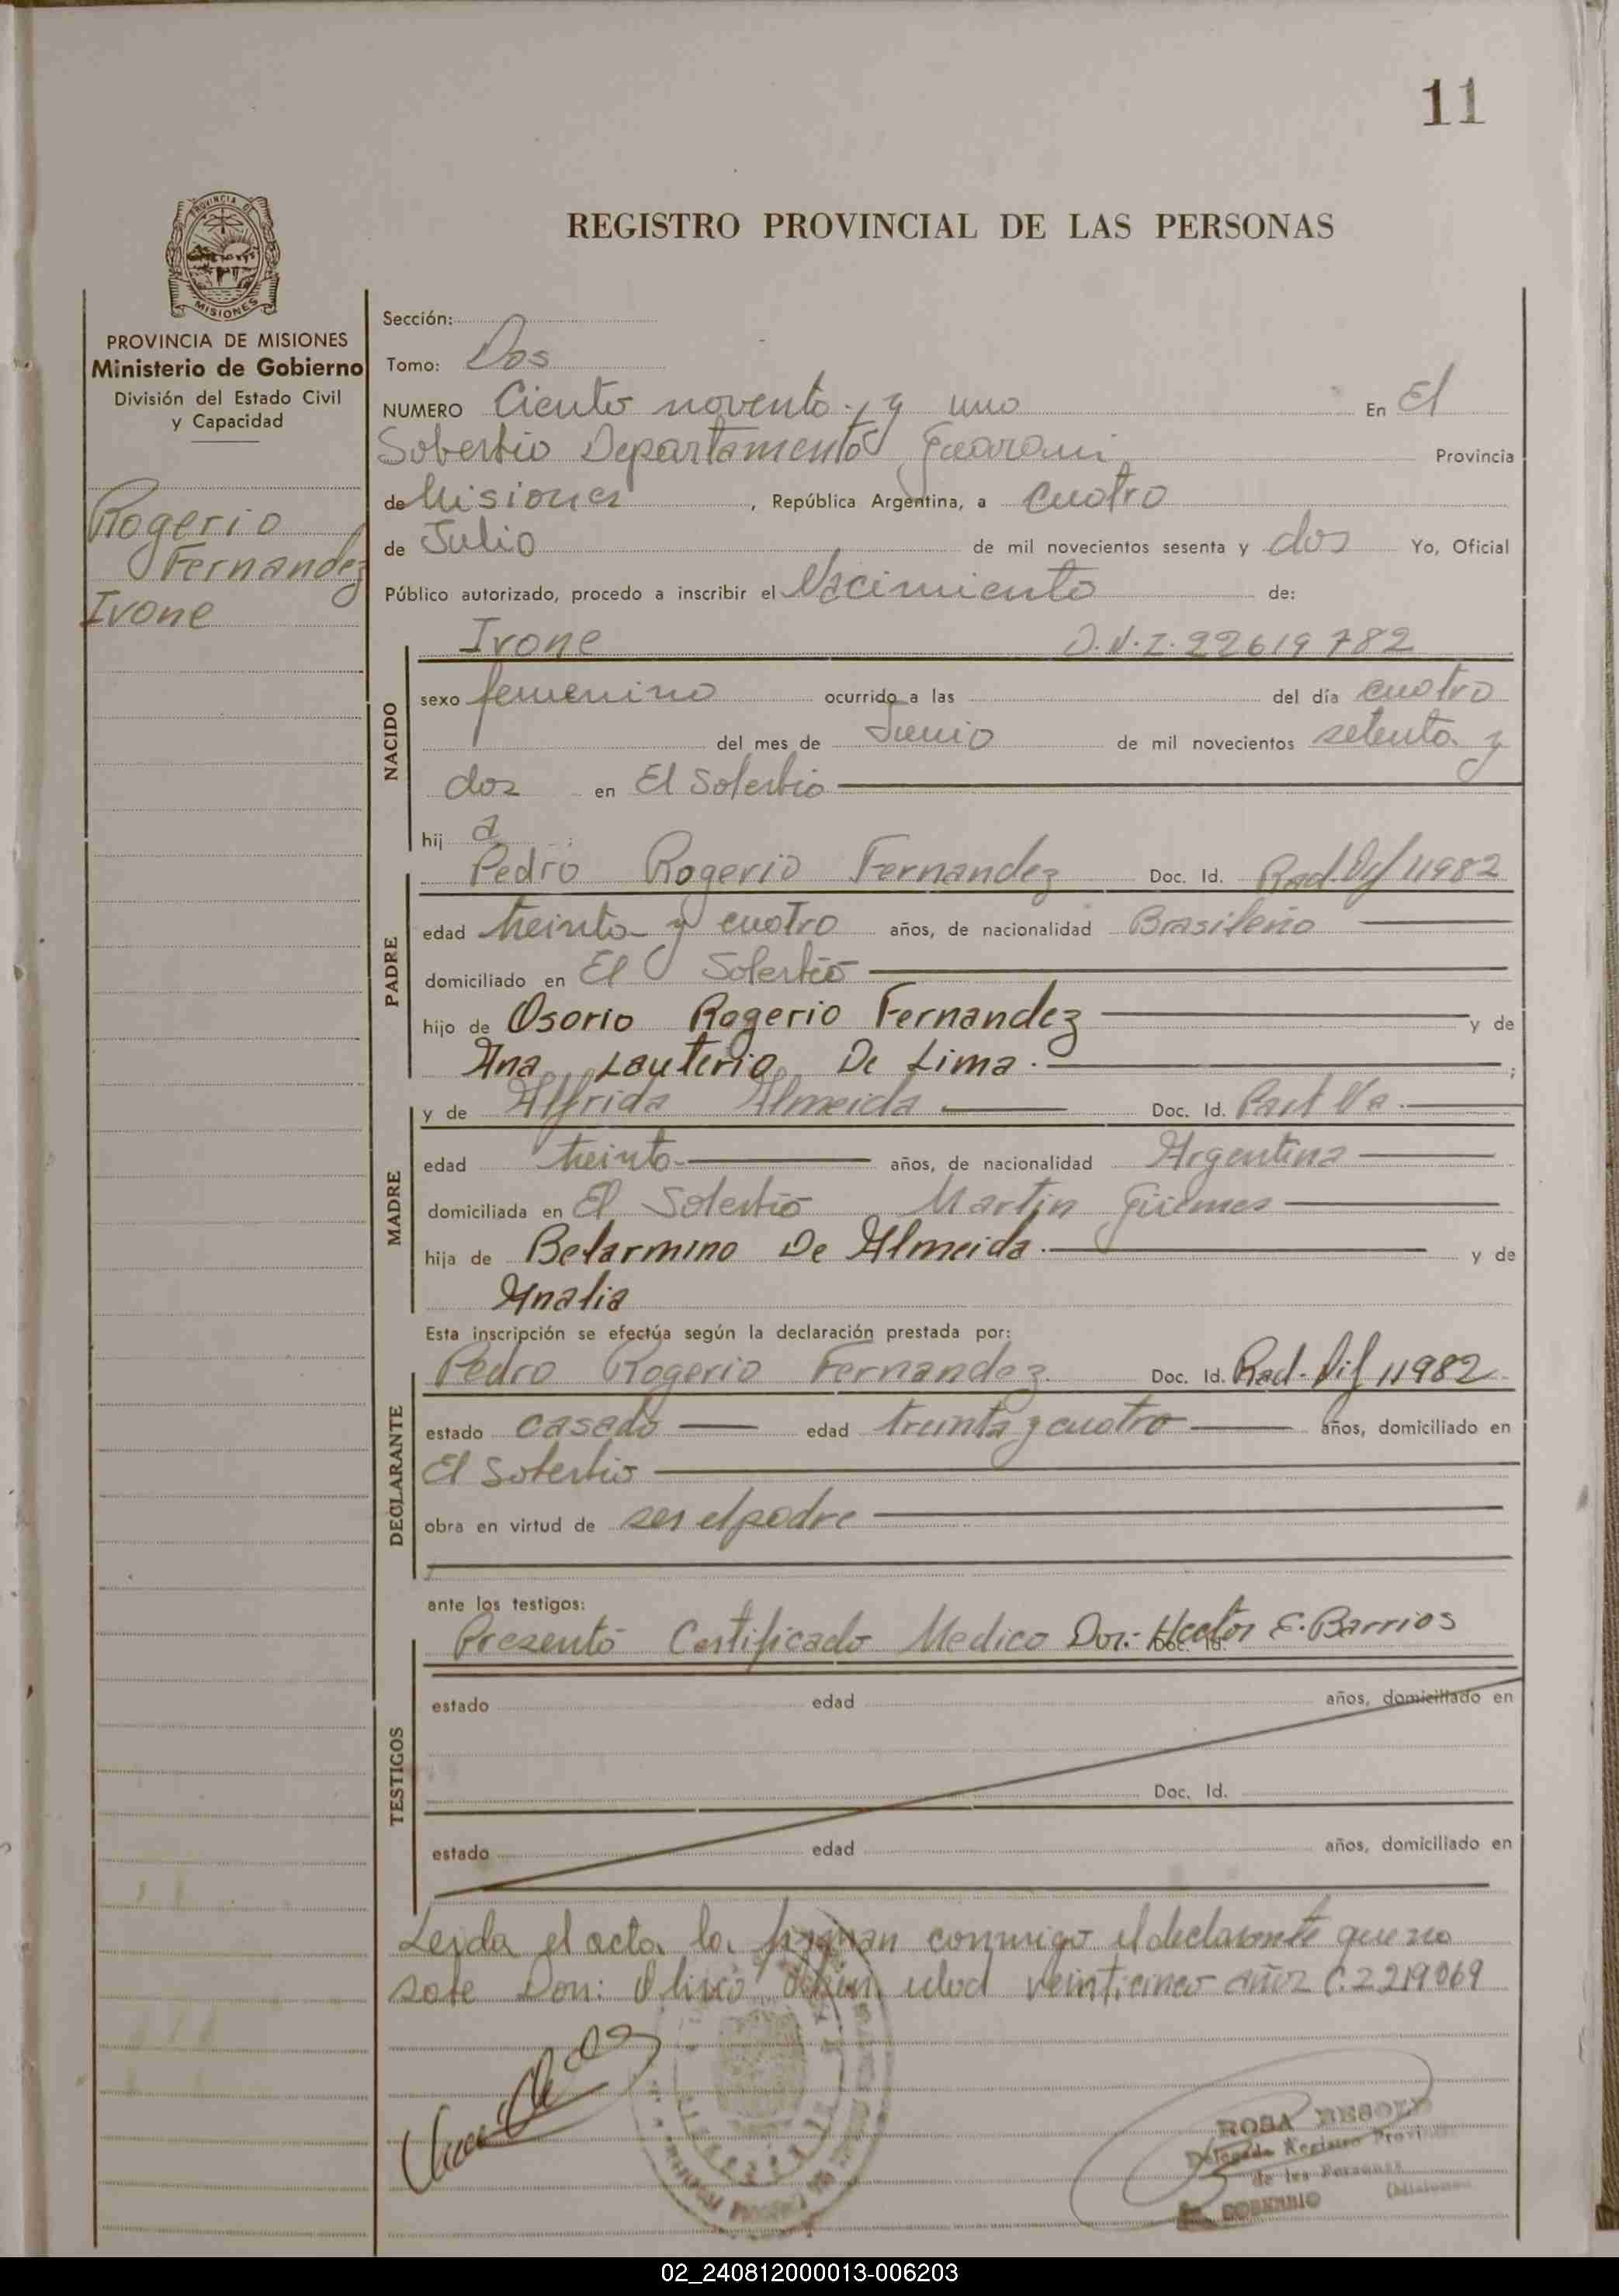 11
PROVINCIA DE
MISIONES
REGISTRO PROVINCIAL DE LAS PERSONAS
PROVINCIA DE MISIONES
Ministerio de Gobierno
División del Estado Civil
y Capacidad
Rogerio
Fernandez
Ivone
Sección:
Tomo: Dos
NUMERO Ciento novento y uno En El
Soberbio Departamento Guarani Provincia
de Misiones, República Argentina, a cuatro
de Julio de mil novecientos sesenta y dos Yo, Oficial
Público autorizado, procedo a inscribir el Nacimiento de:
NACIDO
Ivone D.N.I. 22619782
sexo femenino ocurrido a las del día cuatro
del mes de Junio de mil novecientos setenta y
dos en El Soberbio
hij a
PADRE
Pedro Rogerio Fernandez Doc. Id. Rad. Dif 11982
edad treinta y cuatro años, de nacionalidad Brasileño
domiciliado en El Soberbio
hijo de Osorio Rogerio Fernandez y de
Ana Lauterio De Lima.;
MADRE
y de Alfrida Almeida Doc. Id. Part Va.
edad treinta años, de nacionalidad Argentina
domiciliada en El Soberbio Martin Güemes
hija de Belarmino De Almeida. y de
Analia
Esta inscripción se efectúa según la declaración prestada por:
DECLARANTE
Pedro Rogerio Fernandez. Doc. Id. Rad. Dif 11982
estado casado edad treinta y cuatro años, domiciliado en
El Soberbio
obra en virtud de ser el padre
ante los testigos:
TESTIGOS
Presentó Certificado Medico Dor: Hector E. Barrios
Doc. Id.
estado edad años, domiciliado en
Doc. Id.
estado edad años, domiciliado en
Leida el acta la firman conmigo el declarante que no
sabe Don: edad veinticinco años C.2219069
ROSA
Delegada Registro Provincial
de las Personas
SOBERBIO (Misiones)
02_240812000013-006203